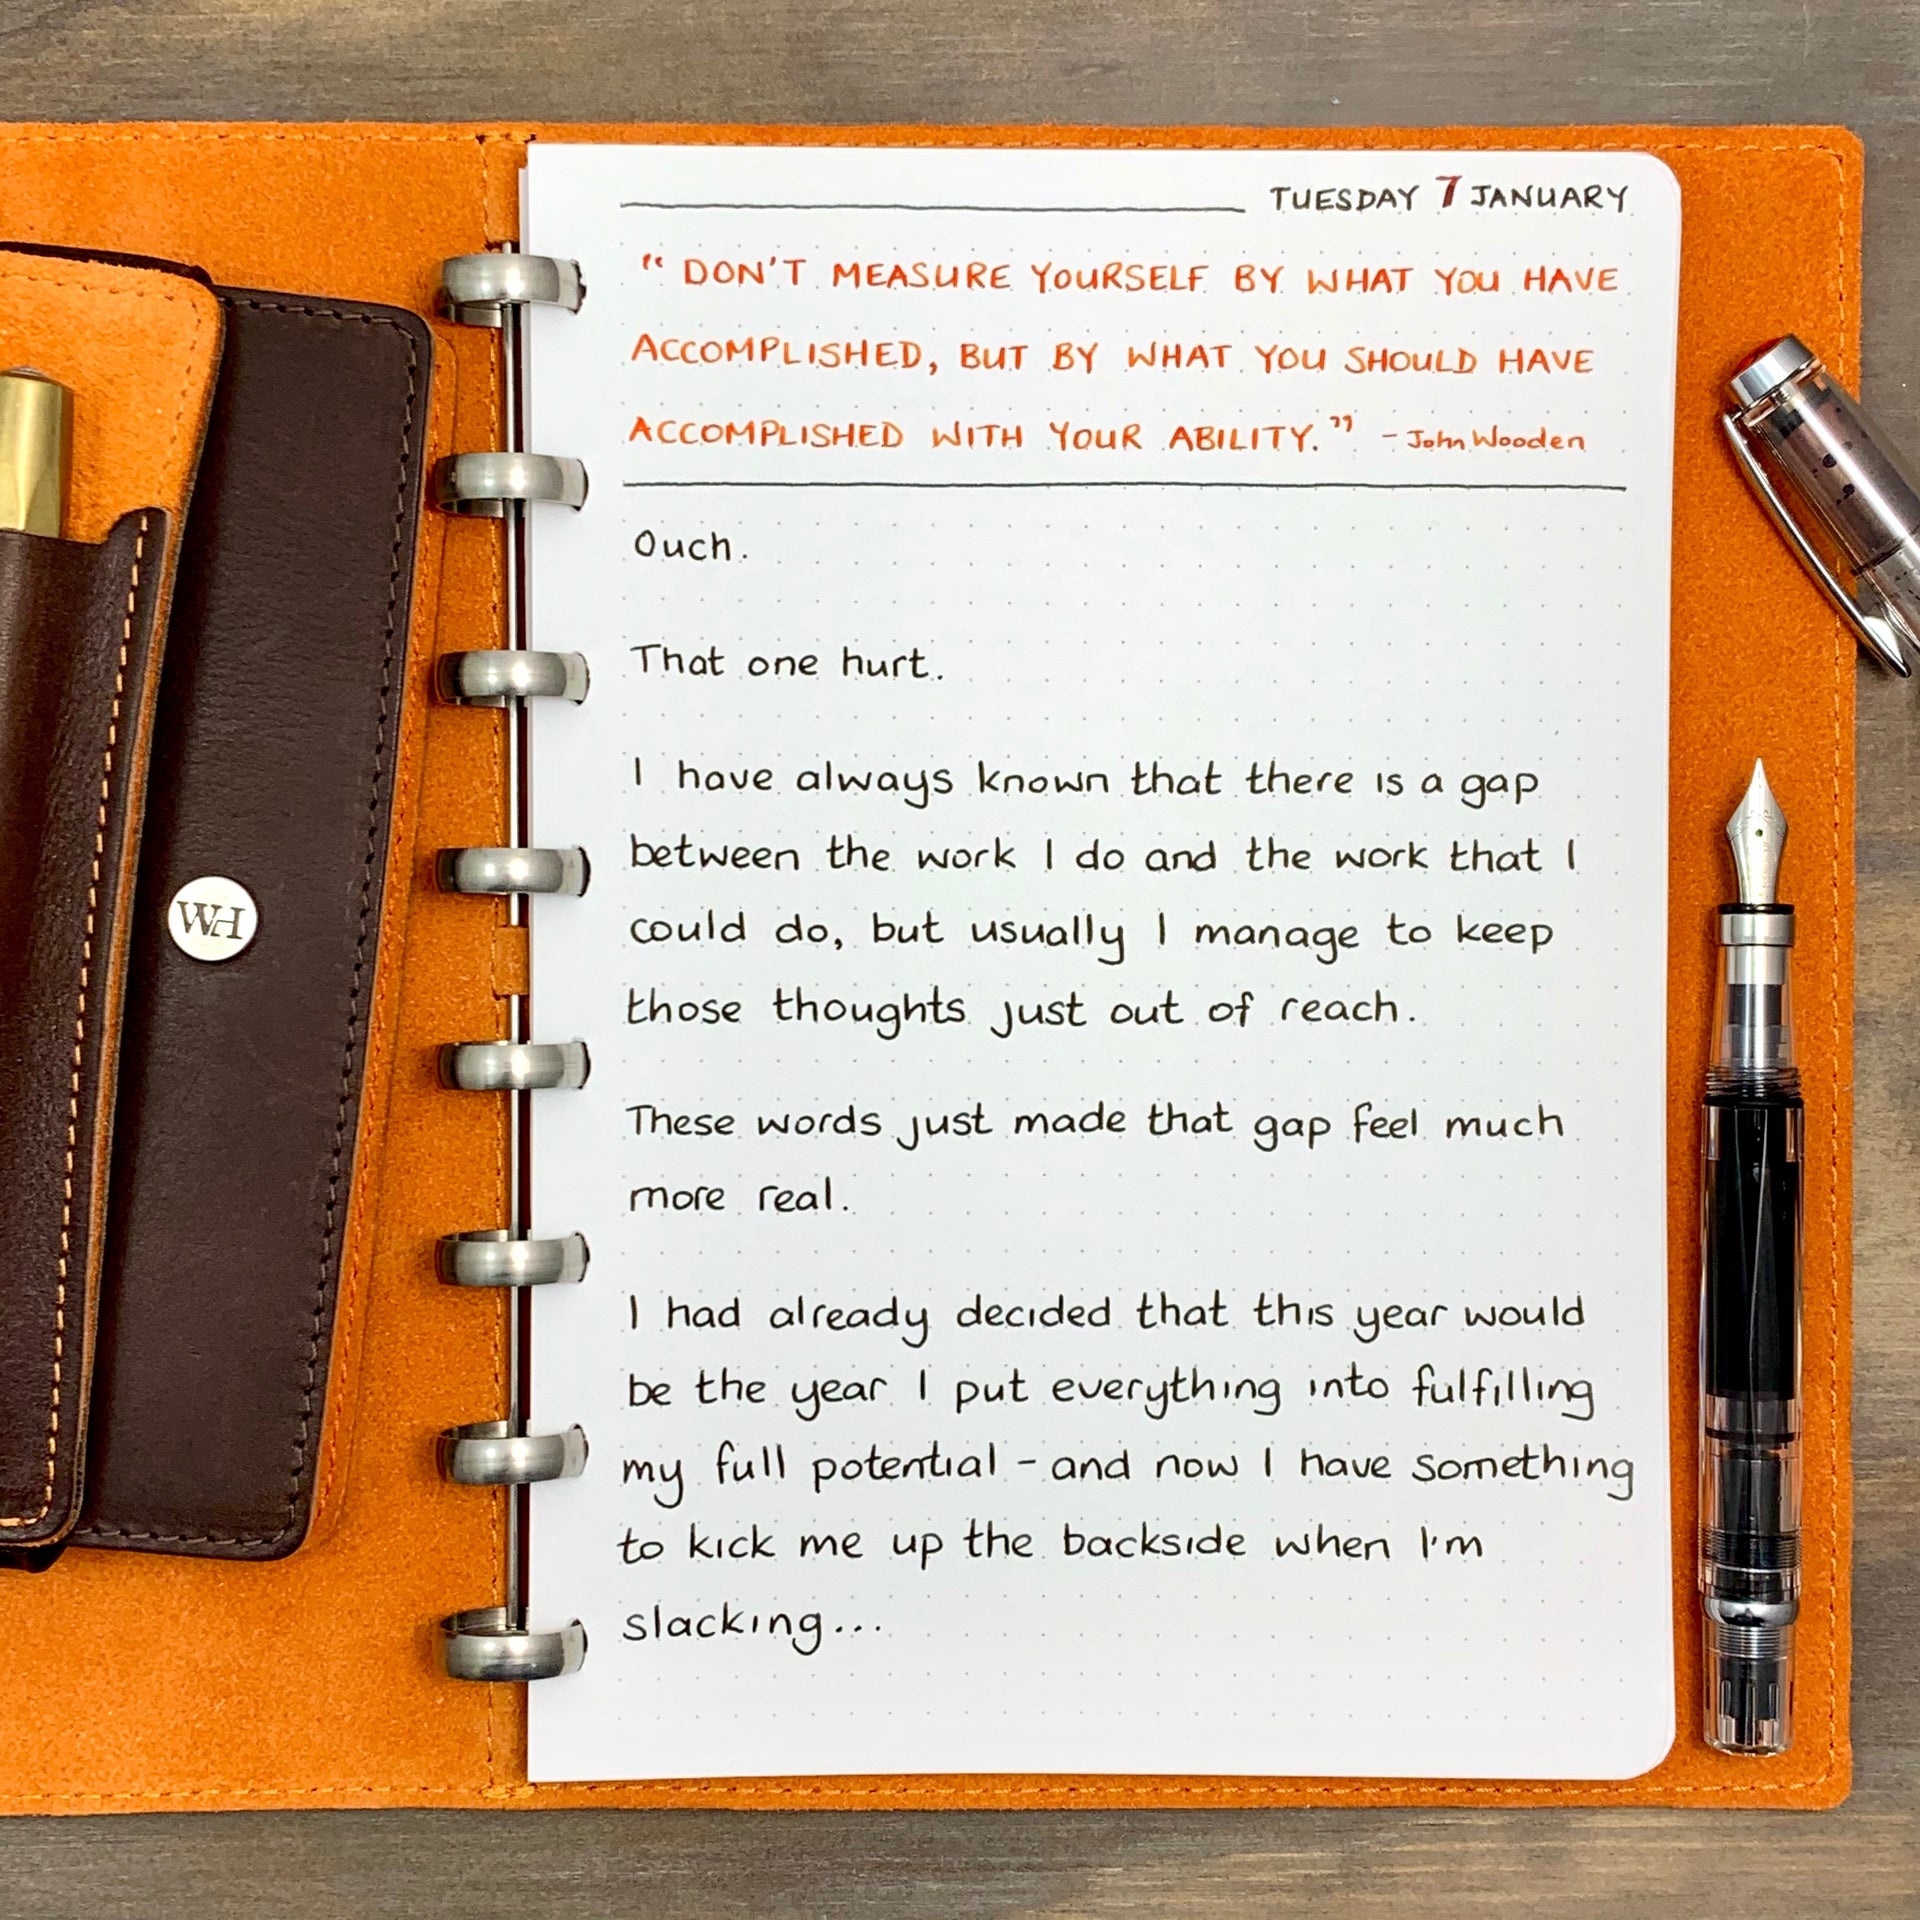 WH
TUESDAY 7 JANUARY
“ DON'T MEASURE YOURSELF BY WHAT YOU HAVE
ACCOMPLISHED, BUT BY WHAT YOU SHOULD HAVE
ACCOMPLISHED WITH YOUR ABILITY.” - John Wooden
Ouch.
That one hurt.
I have always known that there is a gap
between the work I do and the work that I
could do, but usually I manage to keep
those thoughts just out of reach.
These words just made that gap feel much
more real.
I had already decided that this year would
be the year I put everything into fulfilling
my full potential - and now I have something
to kick me up the backside when I'm
slacking...